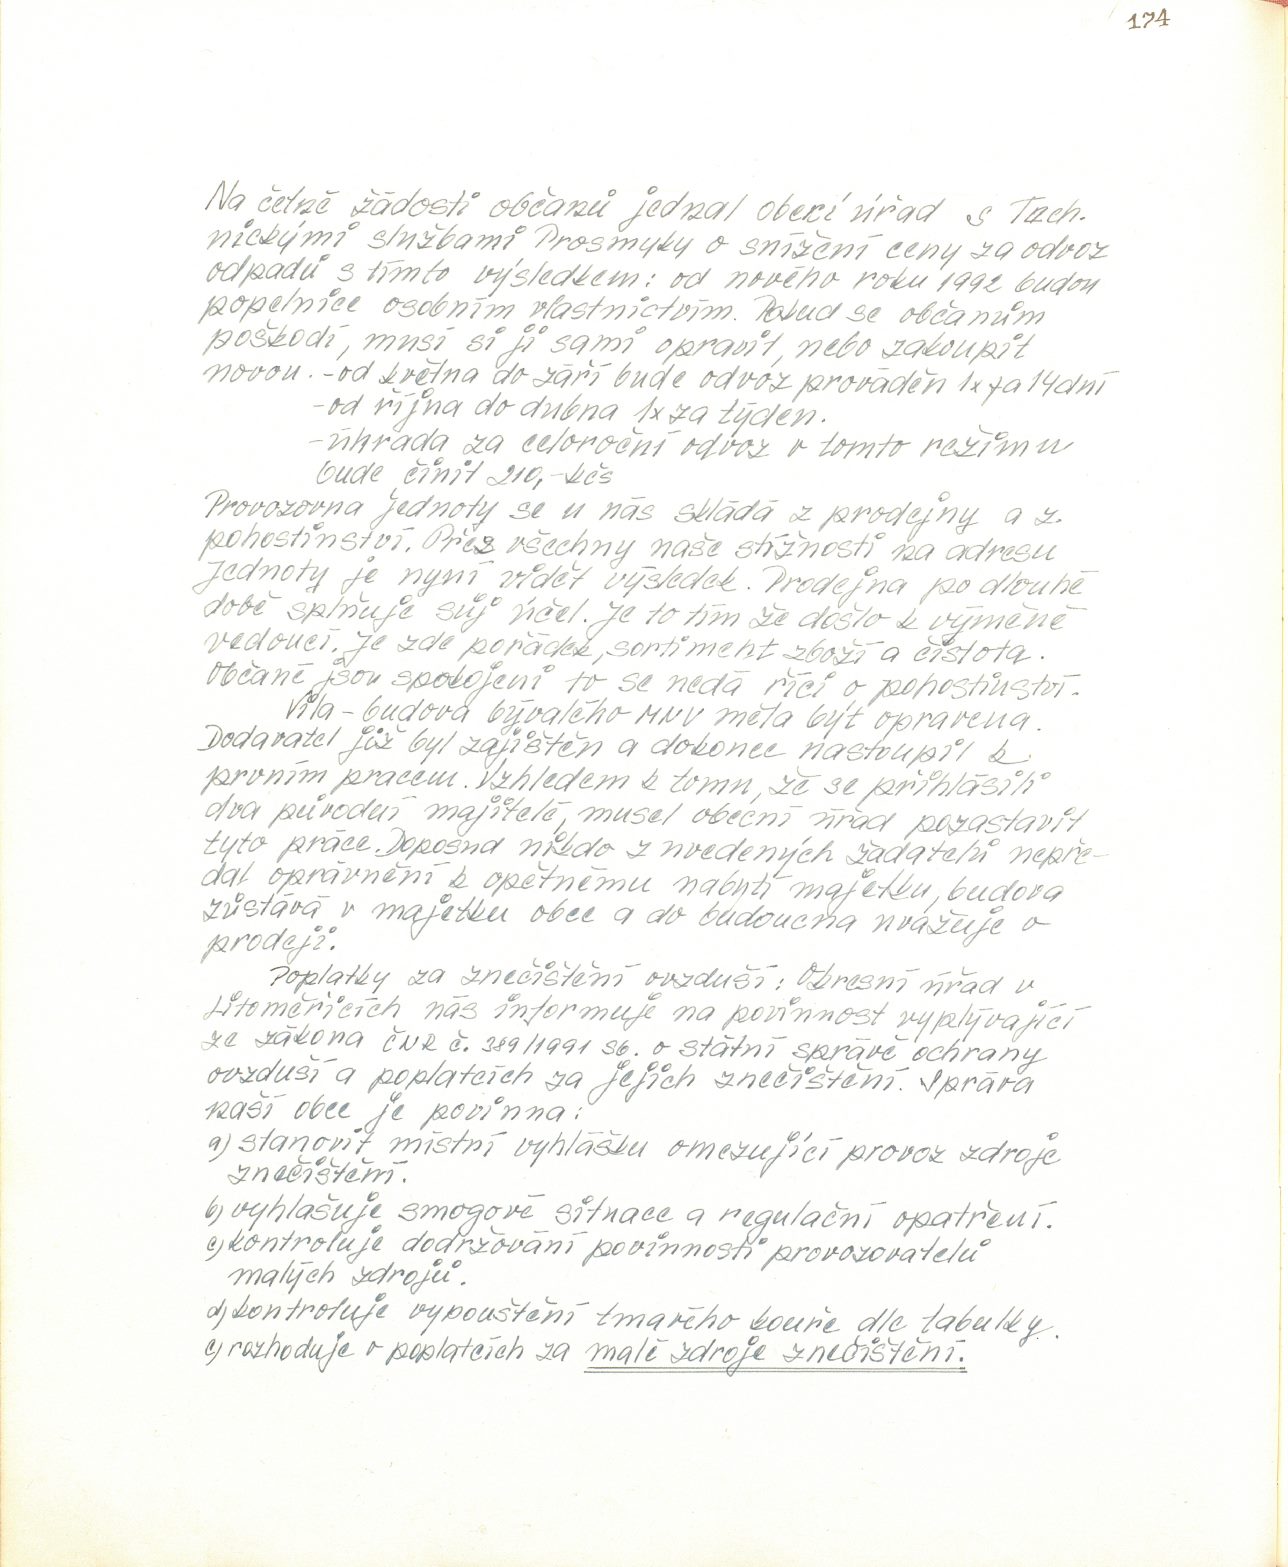 174
Na četné žádosti občanů jednal obecí úřad s Tech.
nickými službami Prosmyky o snížení ceny za odvoz
odpadů s tímto výsledkem: od nového roku 1992 budou
popelnice osobním vlastnictvím. Pokud se občanům
poškodí, musí si ji sami opravit, nebo zakoupit
novou. -od května do září bude odvoz prováděn 1x za 14 dní
-od října do dubna 1x za týden.
-úhrada za celoroční odvoz v tomto režimu
bude činit 210,-kčs
Provozovna Jednoty se u nás skládá z prodejny a z.
pohostinství. Přes všechny naše stížnosti na adresu
Jednoty je nyní vidět výsledek. Prodejna po dlouhé
době splňuje súj účel. Je to tím že došlo k výměně
vedoucí. Je zde pořádek, sortiment zboží a čistota.
Občané jsou spokojeni to se nedá říci o pohostinství.
Vila - budova bývalého MNV měla být opravena.
Dodavatel již byl zajištěn a dokonce nastoupil k
prvním pracem. Vzhledem k tomu, že se přihlásili
dva původní majitelé, musel obecní úřad pozastavit
tyto práce. Doposud nikdo z uvedených žadatelů nepře-
dal oprávnění k opětnému nabytí majetku, budova
zůstává v majetku obce a do budoucna uvažuje o
prodeji.
Poplatky za znečištění ovzduší: Okresní úřad v
Litoměřicích nás informuje na povinnost vyplývající
ze zákona ČNR č. 389/1991 Sb. o státní správě ochrany
ovzduší a poplatcích za jejich znečištění. Správa
naší obce je povinna:
a) stanovit místní vyhlášku omezující provoz zdroje
znečištění.
b) vyhlašuje smogové situace a regulační opatření.
c) kontroluje dodržování povinnosti provozovatelů
malých zdrojů.
d) kontroluje vypouštění tmavého kouře dle tabulky.
e) rozhoduje o poplatcích za malé zdroje znečištění.